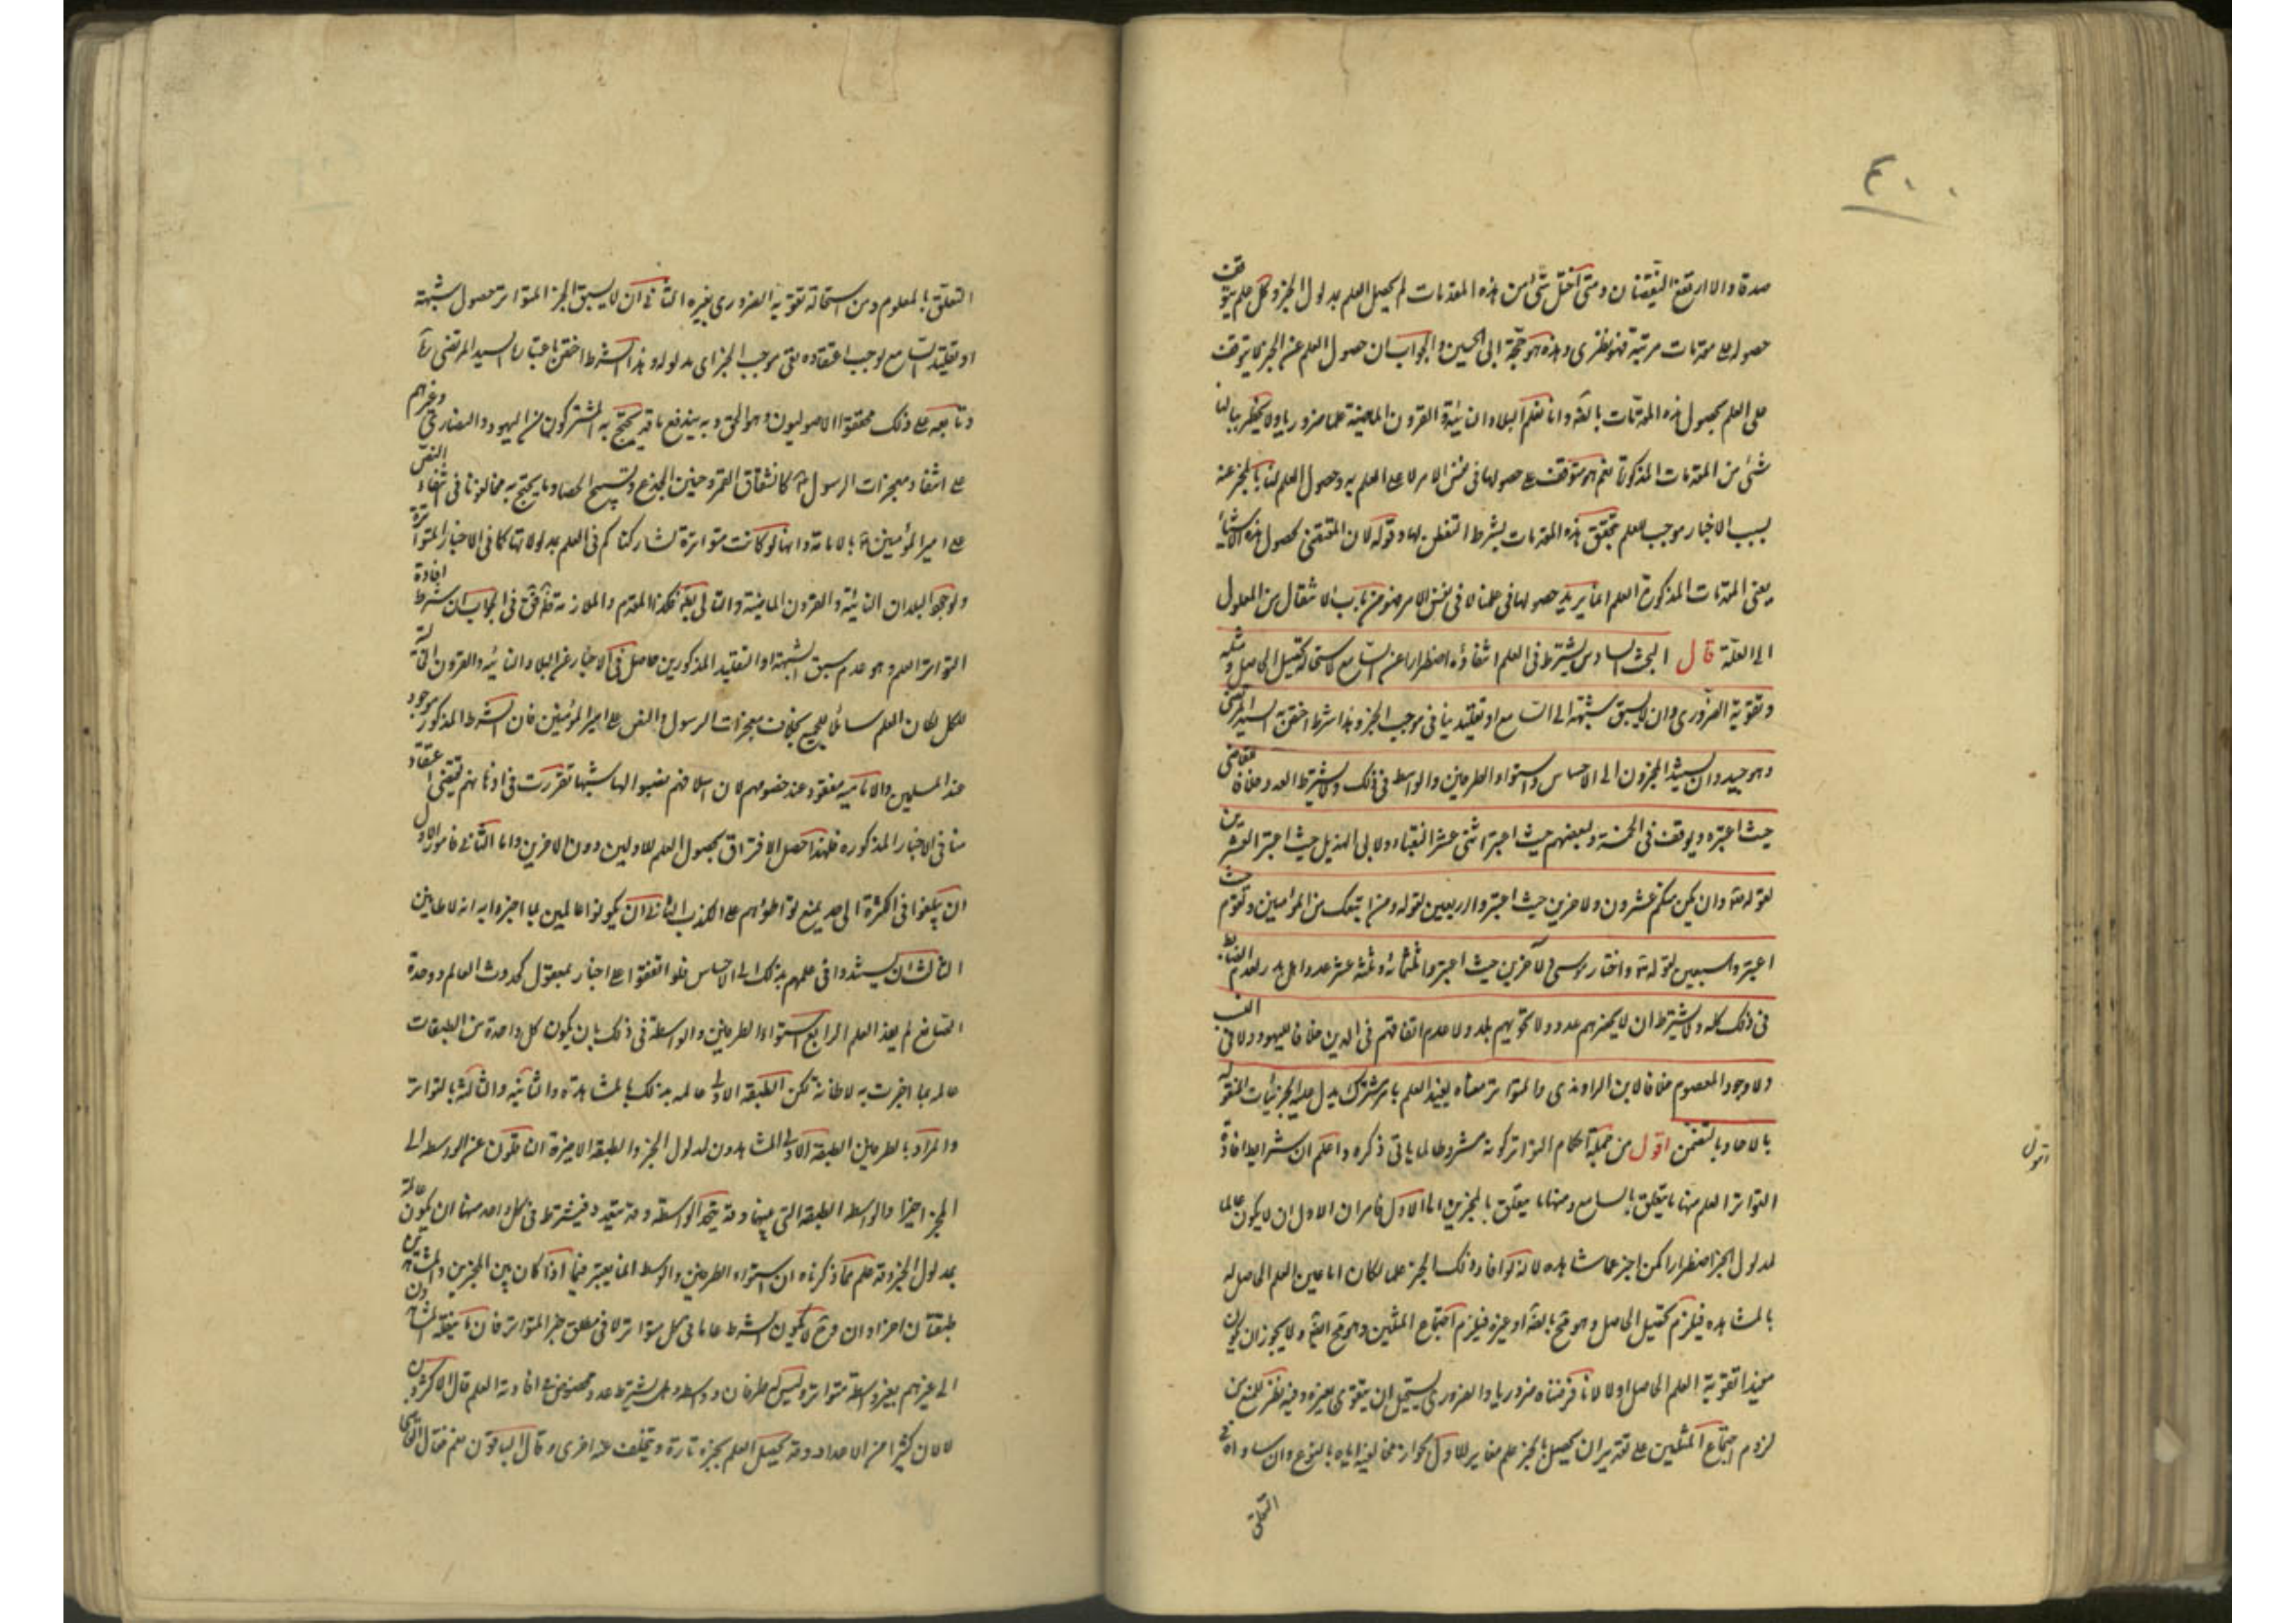 ٤٠٠
صدقا والا ارتفع النقيضان ومتى اختل شئ من هذه المقدمات لم يحصل العلم بمدلول الخبر وكل علم يتوقف
حصوله على مقدمات مرتبة فهو نظرى وهذه هو حجّة ابى الحسين والجواب ان حصول العلم عن الخبر لا يتوقف
على العلم بحصول هذه المقدمات بالفعل وانا نعلم البلاد النائية والقرون الماضية علما ضروريا ولا يخطر ببالنا
شئ من المقدمات المذكورة نعم هو متوقف على حصولها فى نفس الامر لا على العلم به وحصول العلم لنا بالمخبر عنه
بسبب الاخبار موجب للعلم بتحقق هذه المقدمات بشرط التفطن لها وقوله لان المقتضى لحصول هذه الاشياء
يعنى المقدمات المذكورة العلم انما يريد حصولها فى علمنا لا فى نفس الامر فهو من باب الانتقال من المعلول
الى العلّة قال البحث السادس يشترط فى العلم انتفاؤه اضطرارا عن السامع لاستحالة تحصيل الحاصل ومثله
وتقوية الضرورى وان لا يسبق شبهة الى السامع او تقليد ينافى موجب الخبر وهذا شرط اختص به السيد المرتضى
وهو جيد وان يستند المخبرون الى الاحساس واستواء الطرفين والواسط فى ذلك ولا يشترط العدد خلافا للقاضى
حيث اعتبره وتوقف فى الخمسة ولبعضهم حيث اعتبر اثنى عشر النقباء ولابى الهذيل حيث اعتبر العشرين
لقوله تعه وان يكن منكم عشرون ولاخرين حيث اعتبروا اربعين لقوله ومن اتبعك من المؤمنين ولقوم
اعتبروا سبعين لقوله تعه واختار موسى ولآخرين حيث اعتبروا ثلثمائة وثلثة عشر عدد اهل بدر لعدم الضابط
فى ذلك كله ولا يشترط ان لا يحصرهم عدد ولا يحويهم بلد ولا عدم اتفاقهم فى الدين خلافا لليهود ولا فى النسب
ولا وجود المعصوم خلافا لابن الراوندى والمتواتر معناه يفيد العلم بامر مشترك يدل عليه الجزئيات المنقولة
بالاحاد وبالتضمن اقول من جملة احكام التواتر كونه مشروطا لما ياتى ذكره واعلم ان شرايط افادة
التواتر العلم منها ما يتعلق بالسامع ومنها ما يتعلق بالمخبرين اما الاول فامران الاول ان لا يكون عالما
لمدلول الخبر اضطرارا كمن اخبر عما شاهده لانه لو افاد ذلك الخبر علما لكان اما عين العلم الحاصل له
بالمشاهده فيلزم تحصيل الحاصل وهو مح بالضرورة او غيره فيلزم اجتماع المثلين وهو مح ايضا ولا يجوز ان يكون
مفيدا تقوية العلم الحاصل اولا لانا فرضناه ضروريا والضرورى يستحيل ان يتقوى بغيره وفيه نظر للمنع من
لزوم اجتماع المثلين على تقدير ان يحصل بالخبر علم مغاير للاول لجواز مخالفته اياه بالنوع وان ساواه فى
التعلق
اقول
التعلق بالمعلوم ومن استحالة تقوية الضرورى بغيره الثانى ان لا يسبق الخبر المتواتر حصول شبهة
او تقليد للسامع توجب اعتقاده نفى موجب الخبر اى مدلوله وهذا الشرط اختص باعتباره السيد المرتضى ره
وتابعه على ذلك محققوا الاصوليون وهو الحق وبه يندفع ما قد يحتج به المشركون من اليهود والنصارى وغيرهم
على انتفاء معجزات الرسول كانشقاق القمر وحنين الجذع وتسبيح الحصا وما يحتج به مخالفونا فى انتفاء النص
على امير المؤمنين ع بالامامة وانها لو كانت متواترة لشاركناكم فى العلم بمدلولاتها كما فى الاخبار المتواترة
بوجود البلدان النائية والقرون الماضية والتالى بط فكذا المقدم والملازمة ظ فنقول فى الجواب ان شرط افادة
التواتر العلم وهو عدم سبق الشبهة او التقليد المذكورين حاصل فى الاخبار عن البلاد النائيه والقرون الخالية
للكل لكان العلم شاملا للجميع بخلاف معجزات الرسول والنص على امير المؤمنين فان الشرط المذكور موجود
عند المسلمين والامامية مفقود عند خصومهم لان اسلافهم نصبوا لها شبها تقررت فى اذهانهم تقتضى اعتقاد
منافى الاخبار المذكوره فلهذا حصل الافتراق بحصول العلم للاولين دون الاخرين واما الثانى فامور الاول
ان يبلغوا فى الكثرة الى حد يمنع تواطؤهم على الكذب الثانى ان يكونوا عالمين بما اخبروا به لا ظانين
الثالث ان يستندوا فى علمهم بذلك الى الاحساس فلو اتفقوا على اخبار بمعقول كحدوث العالم ووحدة
الصانع لم يفد العلم الرابع استواء الطرفين والواسطة فى ذلك بان يكون كل واحدة من الطبقات
عالمه بما اخبرت به لا ظانة لكن الطبقه الاولى عالمه بذلك بالمشاهدة والثانيه والثالثه بالتواتر
والمراد بالطرفين الطبقه الاولى المشاهدون لمدلول الخبر والطبقه الاخيرة الناقلون عن الواسطه الى
المخبر اخيرا والواسط الطبقه التى بينهما وقد يتحد الواسطه وقد يتعدد فيشترط فى كل واحد منها ان يكون عالمة
بمدلول الخبر وقد علم مما ذكرناه ان استواء الطرفين والواسط انما يعتبر فيما اذا كان بين المخبرين والمشاهدين
طبقتان اخراوان وح لا يكون الشرط عاما فى كل متواتر لا فى مطلق خبر المتواتر فان ما ينقله المشاهدون
الى غيرهم بغير واسطة متواتر وليس له طرفان وواسط وهل يشترط عدد مخصوص فى افادته العلم قال الاكثرون
لا لان كثيرا من الاعداد قد يحصل العلم بخبره تارة ويتخلف عنه اخرى وقال الباقون نعم فقال القاضى